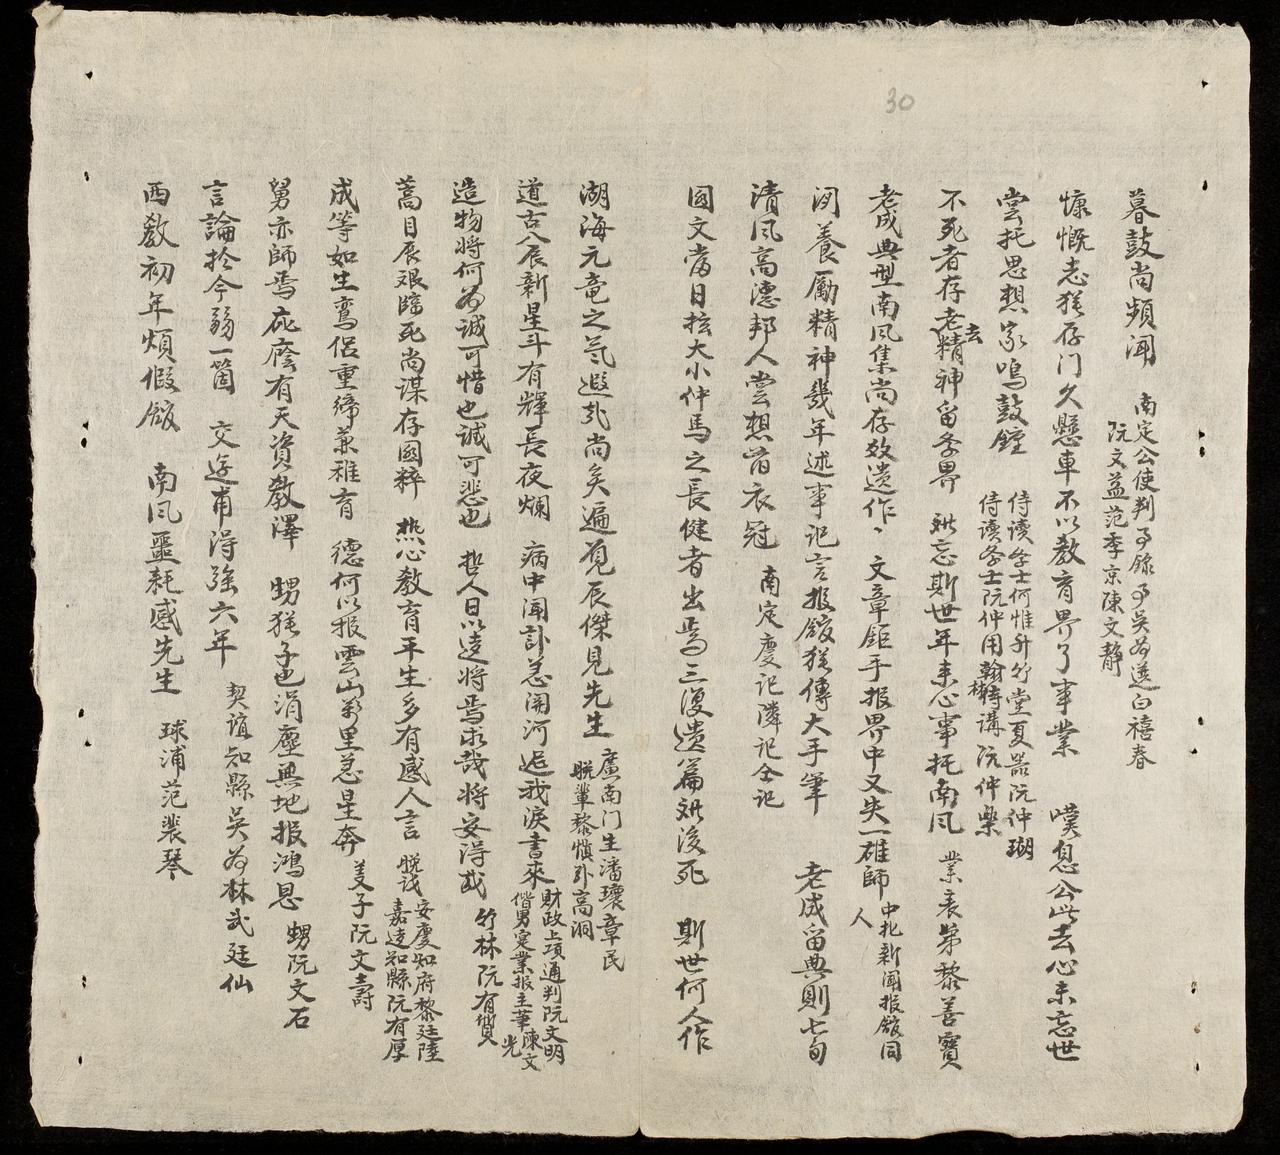 30
暮鼓尚頻闻 南定公使判事錄事吳为選白禧春
阮文益范季京陳文静
慷慨志猶存门久懸車不以教育界了事業 嘆息公此去心未忘世
尝托思想家鳴鼓鐘 侍读学士何惟升竹堂夏器阮仲瑚
侍读学士阮仲用翰林侍講阮仲樂
不死者存老去精神留学界 難忘斯世年来心事托南风 業衰弟黎善寶
老成典型南风集尚存效遗作 文章鉅手报界中又失一雄師 中北新闻报館同
人
闲養勵精神幾年述事记言报館猶傳大手筆 老成留典則七旬
清风高德邦人尝想旧衣冠 南定慶记隣记仝记
國文當日抎大小仲馬之長健者出焉三復遗篇难後死 斯世何人作
湖海元竜之氣遐於尚矣遍覓辰傑見先生 廣南门生潘瓌章民
晩輩黎慎引高洞
道古八辰新星斗有輝長夜爛 病中闻訃忽開河 我淚書來 財政上項通判阮文明
偕男實業报主筆陳文光
造物将何为诚可惜也诚可悲也 哲人日以逺将焉求哉将安得哉 竹林阮有贊
蒿目辰艰臨死尚谋存國粹 热心教育平生多有感人言 晩識 安慶知府黎廷陸
嘉逺知縣阮有厚
成等如生鸞侣重締兼稚育 德何以报雲山萬里忽星奔 姜子阮文壽
舅亦師焉庇廕有天資教澤 甥猶子也涓塵無地报鴻恩 甥阮文石
言論於今弱一箇 交逰甫淂强六年 契谊知縣吳为林武廷仙
西教初年煩假館 南风噩耗感先生 球浦范裴琴